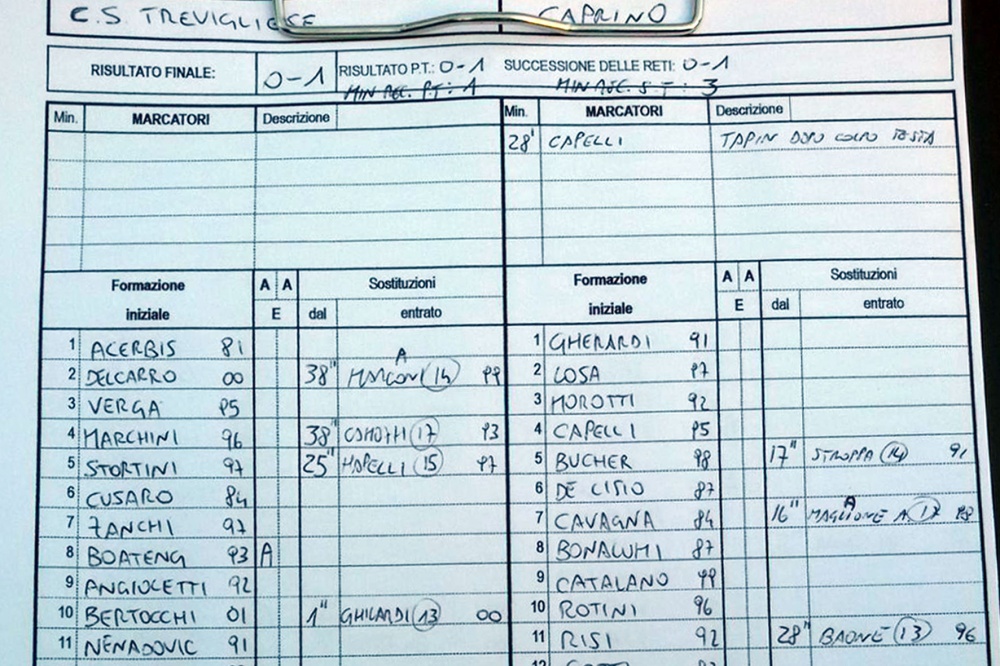 C.S. TREVIGLIESE CAPRINO
RISULTATO FINALE: 0-1 RISULTATO P.T.: 0-1 SUCCESSIONE DELLE RETI: 0-1
MIN REC. P.T: 1 MIN REC. S.T: 3
Min. MARCATORI Descrizione Min. MARCATORI Descrizione
28' CAPELLI TAPIN DOPO COLPO TESTA
Formazione A A Sostituzioni Formazione A A Sostituzioni
iniziale E dal entrato iniziale E dal entrato
1 ACERBIS 81 1 GHERARDI 91
A
2 DELCARRO 00 38" MARCONI 14 99 2 LOSA 97
3 VERGA 95 3 MOROTTI 92
4 MARCHINI 96 38" COMOTTI 17 93 4 CAPELLI 95
5 STORTINI 97 25" MAPELLI 15 97 5 BUCHER 98 17" STROPPA 14 91
6 CUSARO 84 6 DE CISIO 87
A
7 ZANCHI 97 7 CAVAGNA 84 16" MAGLIONE A 17 98
8 BOATENG 93 A 8 BONACUMI 87
9 ANGIOLETTI 92 9 CATALANO 99
10 BERTOCCHI 01 1" GHILARDI 13 00 10 ROTINI 96
11 NENADOVIC 91 11 RISI 92 28" BAONE 13 96